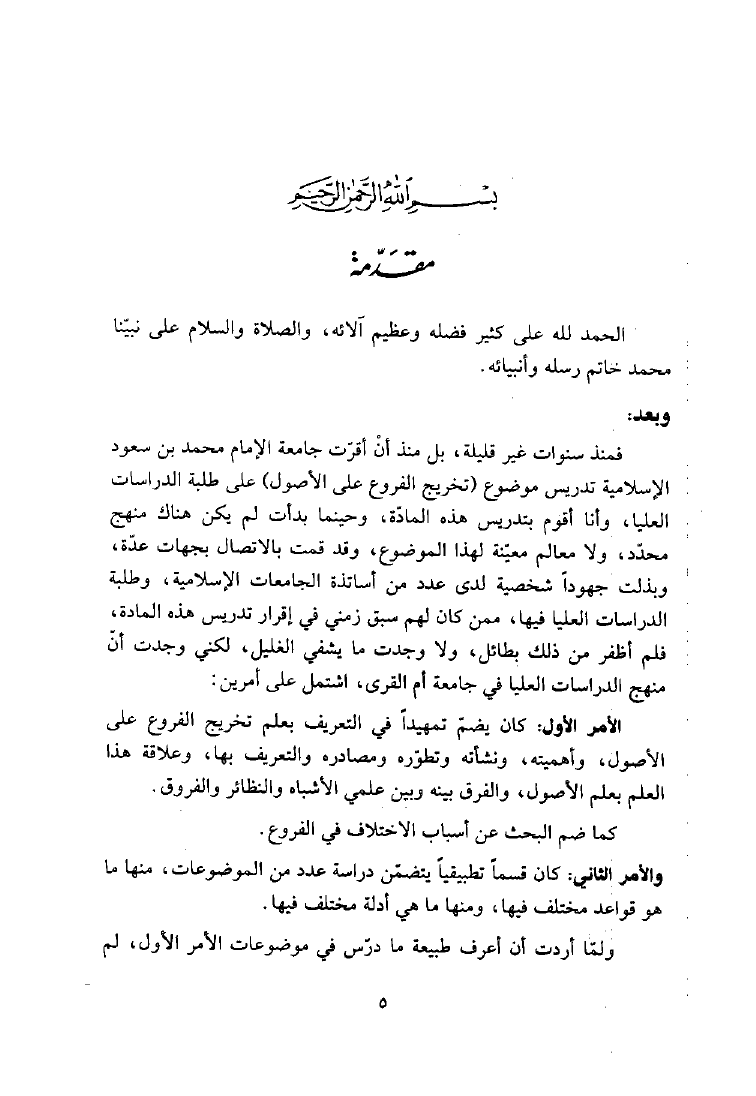 بسم الله الرحمن الرحيم
مقدّمة
الحمد لله على كثير فضله وعظيم آلائه، والصلاة والسلام على نبيّنا
محمد خاتم رسله وأنبيائه.
وبعد:
فمنذ سنوات غير قليلة، بل منذ أنْ أقرّت جامعة الإمام محمد بن سعود
الإسلامية تدريس موضوع (تخريج الفروع على الأصول) على طلبة الدراسات
العليا، وأنا أقوم بتدريس هذه المادّة، وحينما بدأت لم يكن هناك منهج
محدّد، ولا معالم معيّنة لهذا الموضوع، وقد قمت بالاتصال بجهات عدّة،
وبذلت جهوداً شخصية لدى عدد من أساتذة الجامعات الإسلامية، وطلبة
الدراسات العليا فيها، ممن كان لهم سبق زمني في إقرار تدريس هذه المادة،
فلم أظفر من ذلك بطائل، ولا وجدت ما يشفي الغليل، لكني وجدت أنّ
منهج الدراسات العليا في جامعة أم القرى، اشتمل على أمرين:
الأمر الأول: كان يضمّ تمهيداً في التعريف بعلم تخريج الفروع على
الأصول، وأهميته، ونشأته وتطوّره ومصادره والتعريف بها، وعلاقة هذا
العلم بعلم الأصول، والفرق بينه وبين علمي الأشباه والنظائر والفروق.
كما ضم البحث عن أسباب الاختلاف في الفروع.
والأمر الثاني: كان قسماً تطبيقياً يتضمّن دراسة عدد من الموضوعات، منها ما
هو قواعد مختلف فيها، ومنها ما هي أدلة مختلف فيها.
ولمّا أردت أن أعرف طبيعة ما درّس في موضوعات الأمر الأول، لم
٥